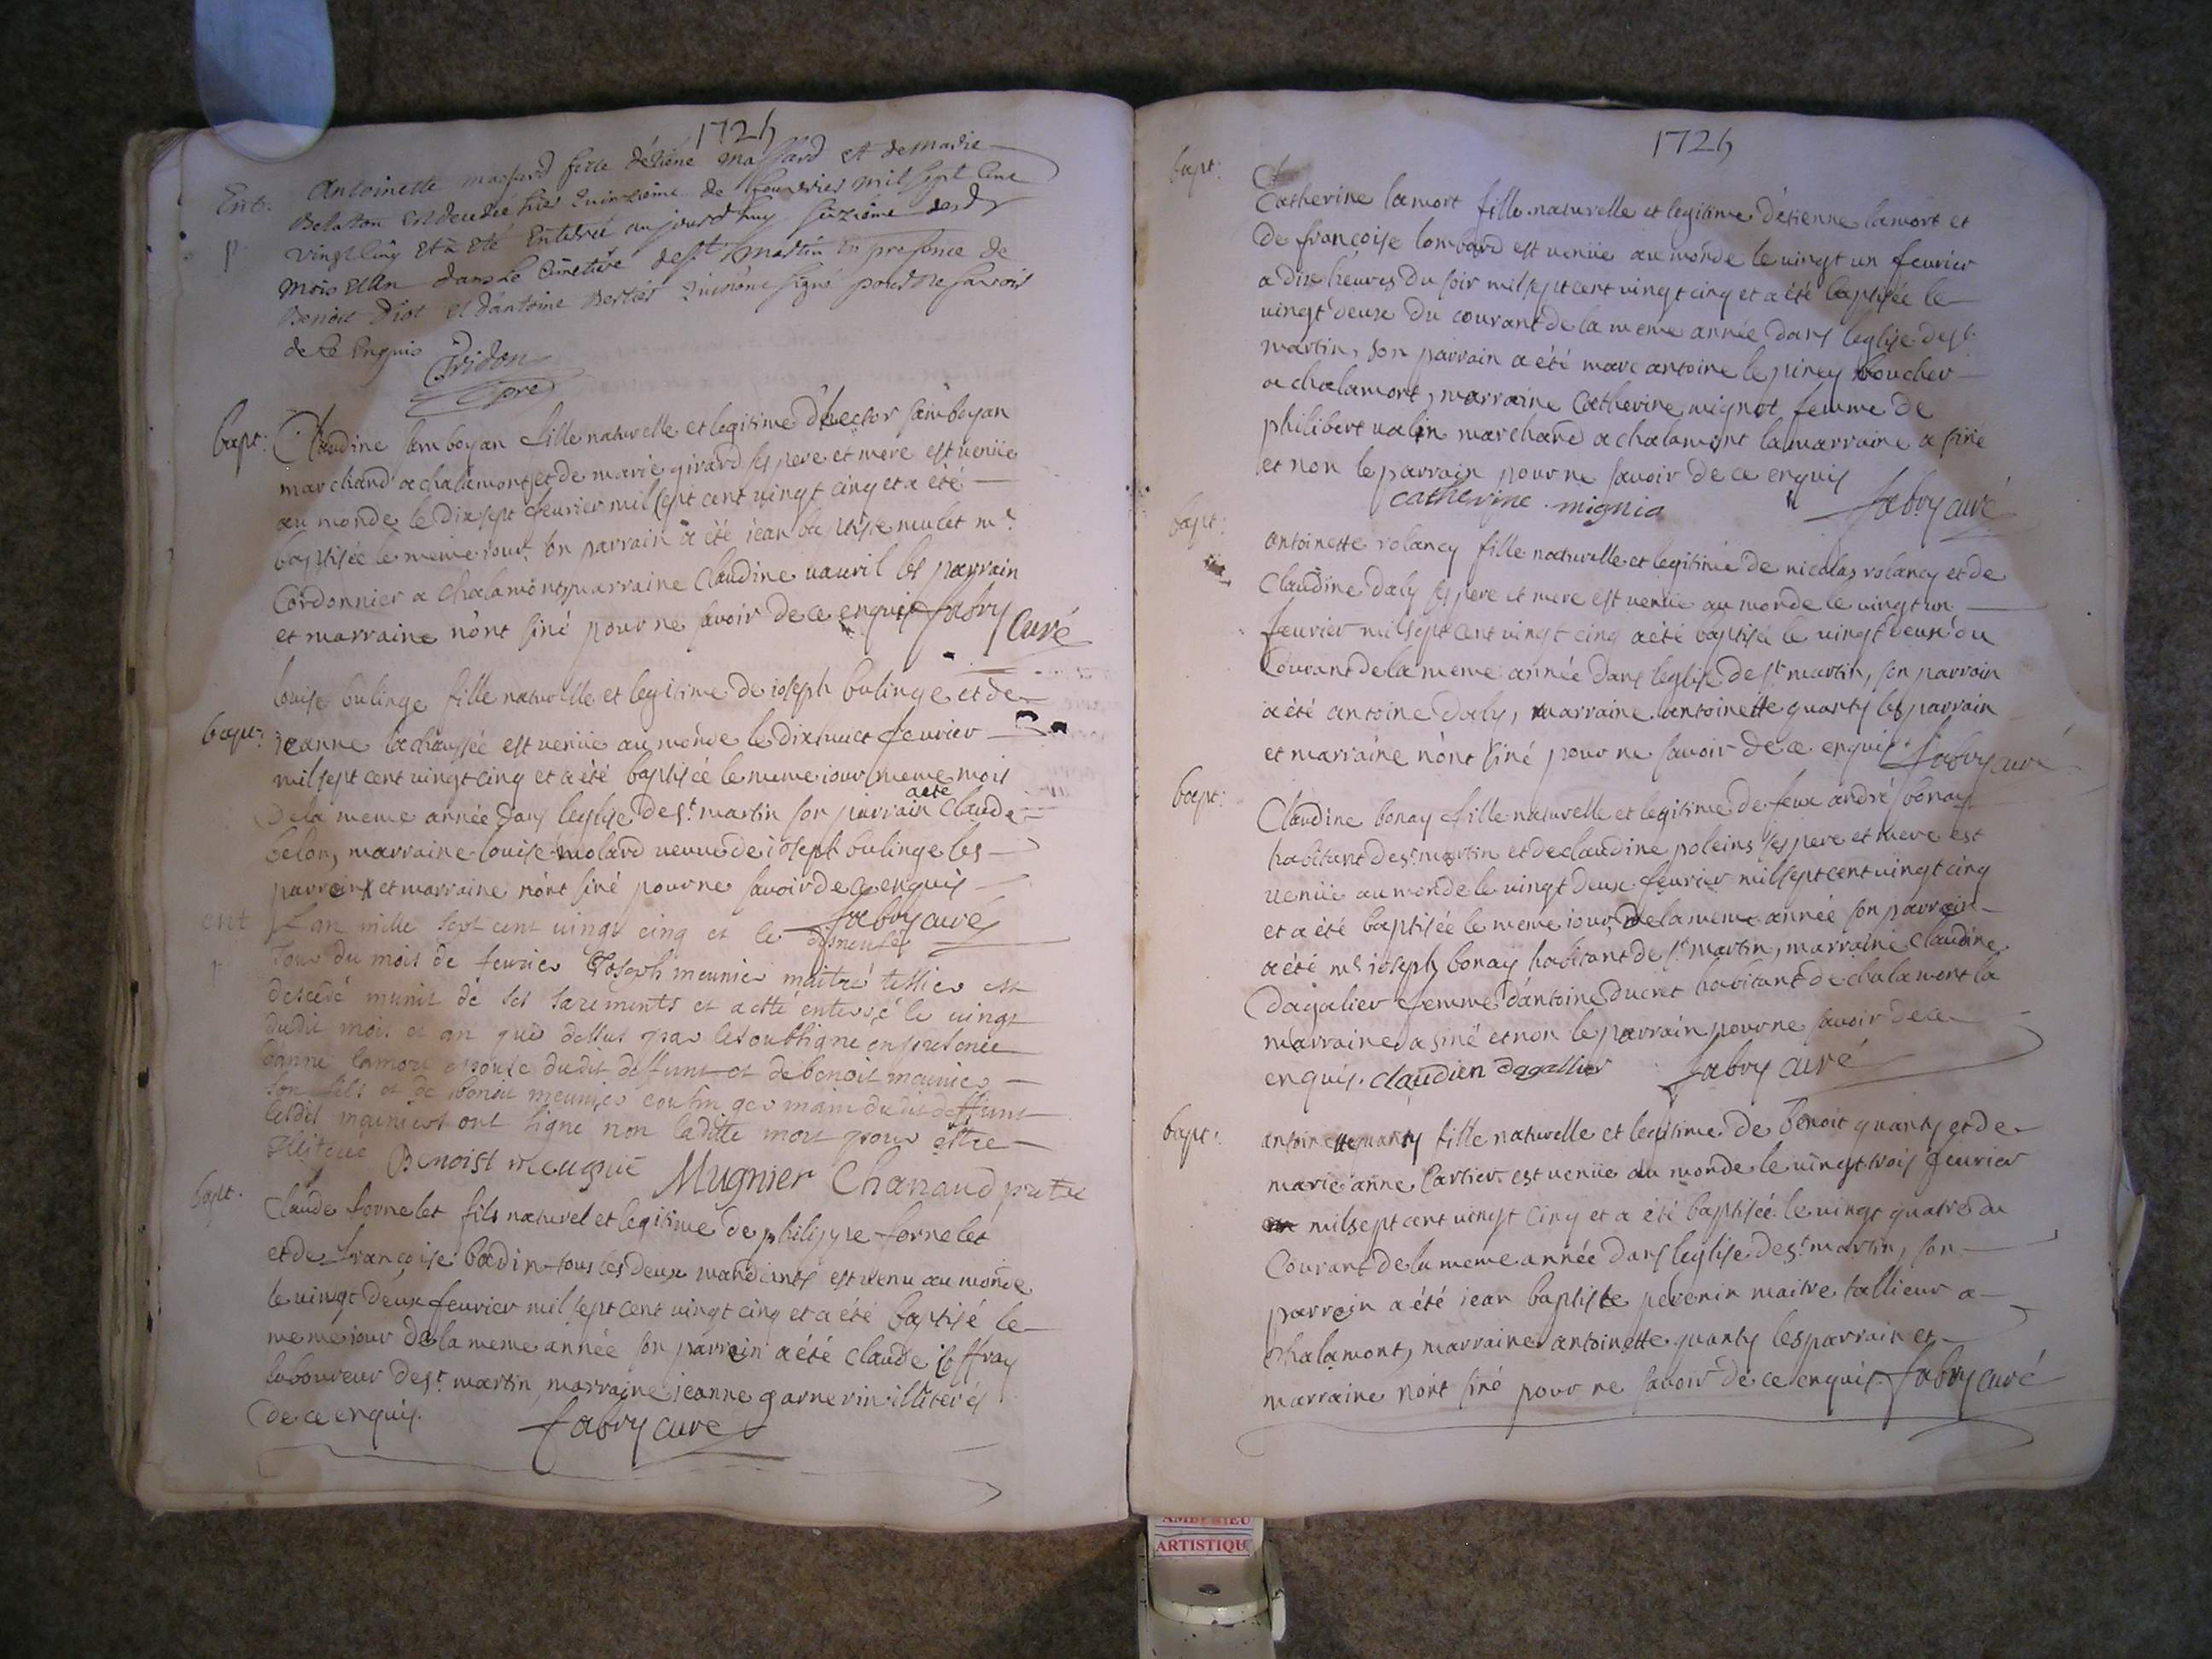 1725
Ent. Antoinette massard fille détiéne massard et de marie
Belaton est decedée hier quinzième de feuvrier mil sept cent
vingt cinq et a été enterrée aujourd'huy seizième desdt
mois et an dans le cimetière de st martin en presence de
Benoit Diot et d'antoine Bertier qui n'ont signé pour ne savoir
de ce enquis Dridon
pre
bapt: Claudine samboyan fille naturelle et legitime d'hector samboyan
marchand a chalamont et de marie girard ses pere et mere est venüe
au monde le dix sept feurier mil sept cent vingt cinq et a été
baptisée le meme iour son parrain a été iean baptiste mulet me
Cordonnier a chalamont, marraine Claudine vauril les parrain
et marraine n'ont siné pour ne savoir de ce enquis fabry Curé
louise bulinge fille naturelle et legitime de ioseph bulinge et de
bapt: ieanne lachaussée est venüe au monde le dixhuict feurier
mil sept cent vingt cinq et a été baptisée le meme iour meme mois
De la meme année dans leglise de st martin son parrain a été Claude
belon, marraine louise molard veuve de ioseph bulinge les
parrein et marraine n'ont siné pour ne savoir de ce enquis
fabry curé
ent L'an mille sept cent vingt cinq et le disneufe
Jour du mois de feurier Joseph meunier maitre tessier est
descedé munit de ses sacrements et a esté enterré le vingt
dudit mois et an que dessus par le soubsigne en presence
d'anne lamort epouse dudit deffunt et de benoit meunier
son fils et de benoit meunier cousin germain dudit deffunt
lesdit meuniers ont signe non laditte mort pour estre
Benoist meugnie Mugnier Chanaud pretre
bapt. Claude fornelet fils naturel et legitime de philippe fornelet
et de françoise badin tous les deux mandiants est venu au monde
le vingt deux feurier mil sept cent vingt cinq et a été baptisé le
meme iour de la meme année son parrein a été claude ioffray
laboureur de st martin, marraine ieanne garnerin illiterés
De ce enquis. fabry curé
1725
bapt: Catherine lamort fille naturelle et legitime d'etienne lamort et
de françoise lombard est venüe au monde le vingt un feurier
a dix heures du soir mil sept cent vingt cinq et a été baptisée le
vingt deux du courant de la meme année dans leglise de st
martin, son parrain a été marc antoine le piney boucher
a chalamont, marraine Catherine mignot femme de
philibert valin marchand a chalamont la marraine a siné
et non le parrain pour ne savoir de ce enquis
catherine mignia fabry curé
bapt: antoinette rolancy fille naturelle et legitime de nicolas rolancy et de
Claudine daly ses pere et mere est venüe au monde le vingt un
feurier mil sept cent vingt cinq a été baptisée le vingt deux du
Courant de la meme année dans leglise de st martin, son parrain
a été antoine daly, marraine antoinette quanty les parrain
et marraine n'ont siné pour ne savoir de ce enquis fabry curé
bapt: Claudine bonay fille naturelle et legitime de feux andré bonay
habitant de st martin et de claudine poleins ses pere et mere est
venüe au monde le vingt deux feurier mil sept cent vingt cinq
et a été baptisée le meme iour de la meme année son parrain
a été me ioseph bonay habitant de st martin, marraine claudine
dagalier femme d'antoine ducret habitant de chalamont la
marraine a siné et non le parrain pour ne savoir de ce
enquis. claudien dagallier fabry curé
bapt: antoinette quanty fille naturelle et legitime de benoit quanty et de
marie anne Cartier est venüe au monde le vingt trois feurier
mil sept cent vingt cinq et a été baptisée le vingt quatre du
Courant de la meme année dans leglise de st martin, son
parrein a été iean baptiste pevenin maitre tallieur a
chalamont, marraine antoinette quanty les parrain et
marraine n'ont siné pour ne savoir de ce enquis. fabry curé
ARTISTIQU